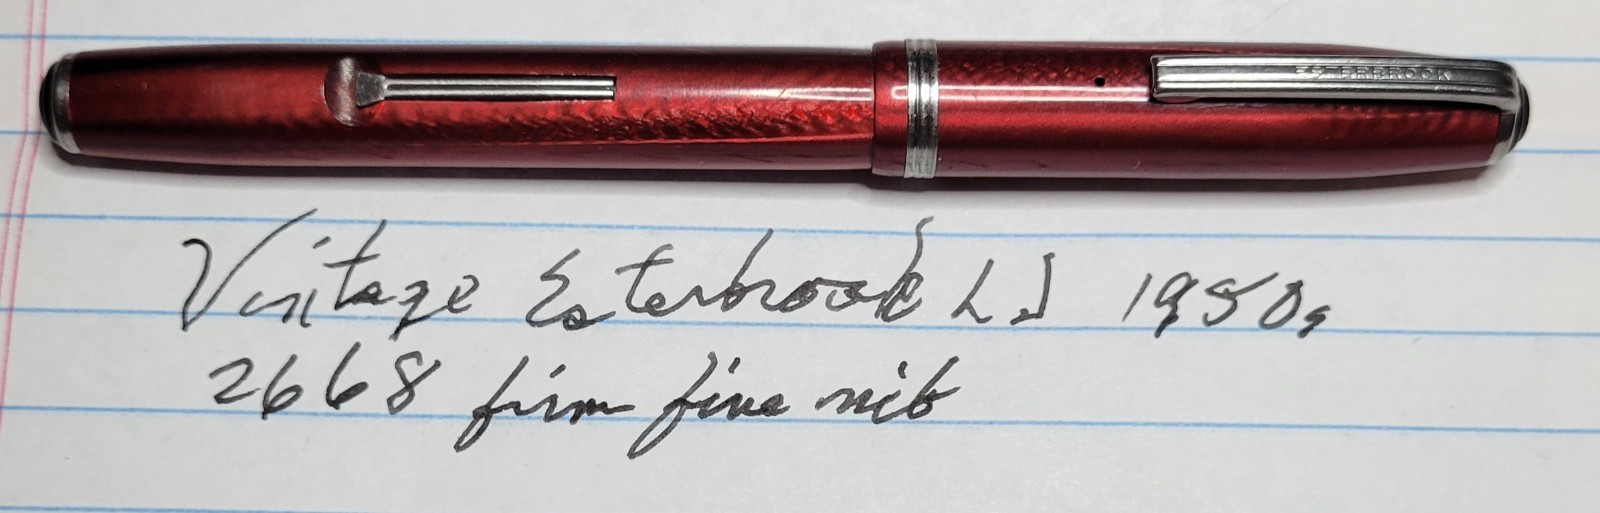 ESTERBROOK
Vintage Esterbrook LJ 1950s
2668 firm fine nib